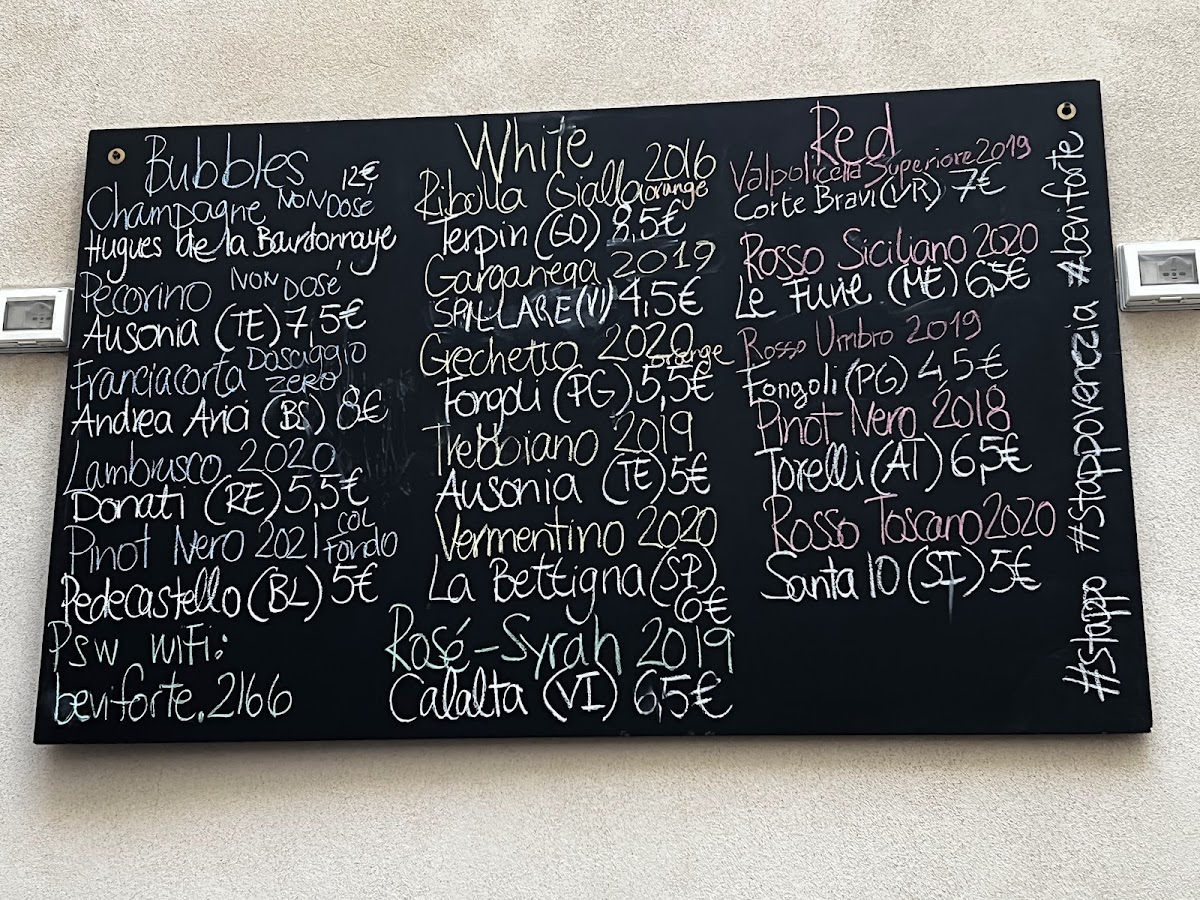 Bubbles
Champagne NON DOSÉ 12€
Hugues de la Bourdonnaye
Pecorino NON DOSÉ
Ausonia (TE) 7,5€
Franciacorta Dosaggio ZERO
Andrea Arici (BS) 8€
Lambrusco 2020
Donati (RE) 5,5€
Pinot Nero 2021 COL FONDO
Pedecastello (BL) 5€
Psw WiFi:
beviforte.2166
White
Ribolla Gialla 2016 orange
Terpin (GO) 8,5€
Garganega 2019
(VI) 4,5€
Grechetto 2020 orange
Fongoli (PG) 5,5€
Trebbiano 2019
Ausonia (TE) 5€
Vermentino 2020
La Bettigna (SP)
6€
Rosé-Syrah 2019
Calalta (VI) 6,5€
Red
Valpolicella Superiore 2019
Corte Bravi (VR) 7€
Rosso Siciliano 2020
Le Furie (ME) 6,5€
Rosso Umbro 2019
Fongoli (PG) 4,5€
Pinot Nero 2018
Torelli (AT) 6,5€
Rosso Toscano 2020
Santa 10 (SI) 5€
#stappo #stappovenezia #beviforte